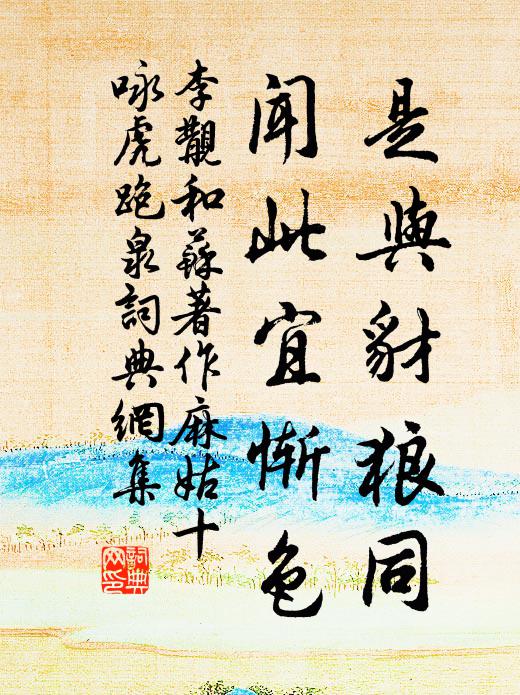 是與豺狼同
聞此宜慚色
李覯和蘇著作麻姑十
咏虎跑泉詞典網集
詞典网印